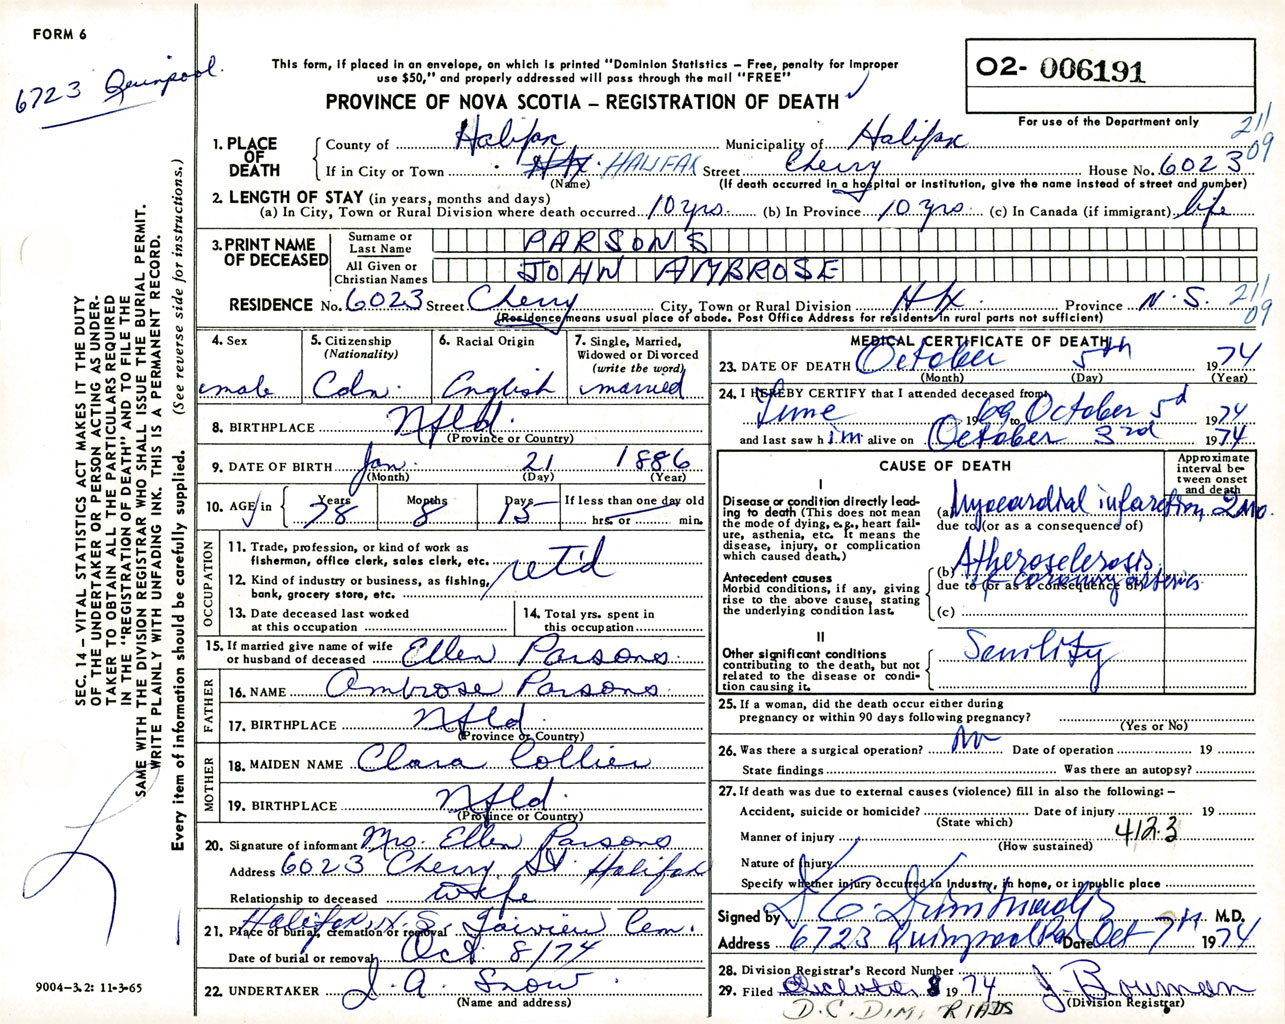 FORM 6
6723 Quinpool.
This form, if placed in an envelope, on which is printed "Dominion Statistics – Free, penalty for improper
use $50," and properly addressed will pass through the mail "FREE"
PROVINCE OF NOVA SCOTIA – REGISTRATION OF DEATH
02- 006191
For use of the Department only
211
09
1. PLACE OF DEATH
County of Halifax Municipality of Halifax
If in City or Town Hfx. HALIFAX Street Cherry House No. 6023
(Name) (If death occurred in a hospital or institution, give the name instead of street and number)
2. LENGTH OF STAY (in years, months and days)
(a) In City, Town or Rural Division where death occurred 10 yrs. (b) In Province 10 yrs (c) In Canada (if immigrant) life
3. PRINT NAME OF DECEASED
Surname or Last Name PARSONS
All Given or Christian Names JOHN AMBROSE
RESIDENCE No. 6023 Street Cherry City, Town or Rural Division Hfx. Province N.S.
(Residence means usual place of abode. Post Office Address for residents in rural parts not sufficient)
211
09
4. Sex
male
5. Citizenship
(Nationality)
Cdn.
6. Racial Origin
English
7. Single, Married,
Widowed or Divorced
(write the word)
married
8. BIRTHPLACE Nfld.
(Province or Country)
9. DATE OF BIRTH Jan. 21 1886
(Month) (Day) (Year)
10. AGE in Years 78 Months 8 Days 15
If less than one day old
hrs. or min.
OCCUPATION
11. Trade, profession, or kind of work as
fisherman, office clerk, sales clerk, etc.
12. Kind of industry or business, as fishing,
bank, grocery store, etc.
ret'd
13. Date deceased last worked
at this occupation
14. Total yrs. spent in
this occupation
15. If married give name of wife
or husband of deceased Ellen Parsons.
FATHER
16. NAME Ambrose Parsons.
17. BIRTHPLACE Nfld.
(Province or Country)
MOTHER
18. MAIDEN NAME Clara Collier
19. BIRTHPLACE Nfld.
(Province or Country)
20. Signature of informant Mrs. Ellen Parsons
Address 6023 Cherry St. Halifax
Relationship to deceased wife
21. Place of burial, cremation or removal Halifax N.S. Fairview Cem.
Date of burial or removal Oct 8/74
22. UNDERTAKER J.A. Snow
(Name and address)
MEDICAL CERTIFICATE OF DEATH
23. DATE OF DEATH October 5th 1974
(Month) (Day) (Year)
24. I HEREBY CERTIFY that I attended deceased from
June 1969 to October 5d 1974
and last saw him alive on October 3rd 1974
CAUSE OF DEATH
Approximate
interval be-
tween onset
and death
I
Disease or condition directly lead-
ing to death (This does not mean
the mode of dying, e.g., heart fail-
ure, asthenia, etc. It means the
disease, injury, or complication
which caused death.)
(a) Myocardial infarction, 2 mo.
due to (or as a consequence of)
Antecedent causes
Morbid conditions, if any, giving
rise to the above cause, stating
the underlying condition last.
(b) Atherosclerosis
of coronary arteries
due to (or as a consequence of)
(c)
II
Other significant conditions
contributing to the death, but not
related to the disease or condi-
tion causing it.
Senility
25. If a woman, did the death occur either during
pregnancy or within 90 days following pregnancy?
(Yes or No)
26. Was there a surgical operation? No Date of operation 19
State findings Was there an autopsy?
27. If death was due to external causes (violence) fill in also the following: –
Accident, suicide or homicide? Date of injury 19
(State which)
Manner of injury 412.3
(How sustained)
Nature of Injury
Specify whether injury occurred in Industry, in home, or in public place
Signed by M.D.
Address 6723 Quinpool Rd Date Oct 7th 1974
28. Division Registrar's Record Number
29. Filed October 8 1974 J. Bowman
(Division Registrar)
D.C. DIMITRIADS
SEC. 14 – VITAL STATISTICS ACT MAKES IT THE DUTY
OF THE UNDERTAKER OR PERSON ACTING AS UNDER-
TAKER TO OBTAIN ALL THE PARTICULARS REQUIRED
IN THE "REGISTRATION OF DEATH" AND TO FILE THE
SAME WITH THE DIVISION REGISTRAR WHO SHALL ISSUE THE BURIAL PERMIT.
WRITE PLAINLY WITH UNFADING INK. THIS IS A PERMANENT RECORD.
Every item of information should be carefully supplied. (See reverse side for instructions.)
9004-3.2: 11-3-65